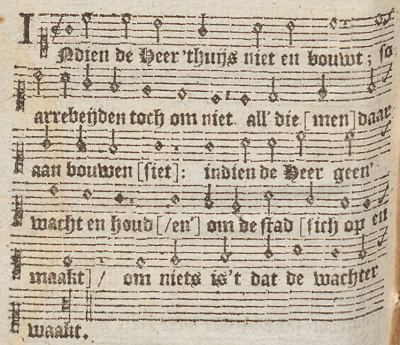 INdien de Heer 'thuijs niet en bouwt; so
arrebeijden toch om niet all' die [men] daar
aan bouwen [siet]: indien de Heer geen'
wacht en houd [/en'] om de stad [sich op en
maakt] / om niets is't dat de wachter
waakt.